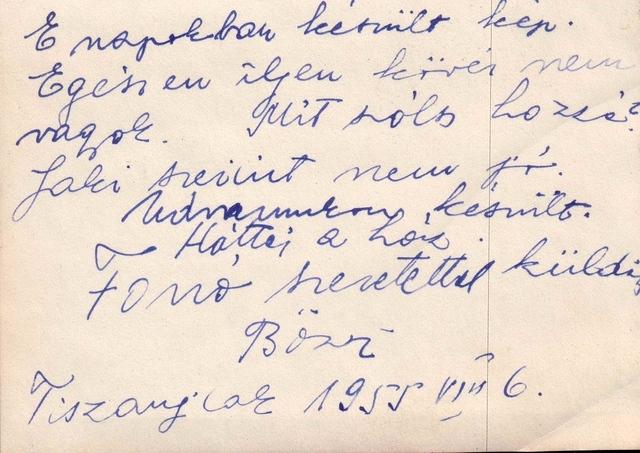 E napokban készült kép.
Egészen ilyen kövér nem
vagyok. Mit szólsz hozzá?
Jaki szerint nem jó.
Udvarunkon készült.
Háttér a ház.
Forró szeretettel küldi
Bözsi
1955 VIII 6.